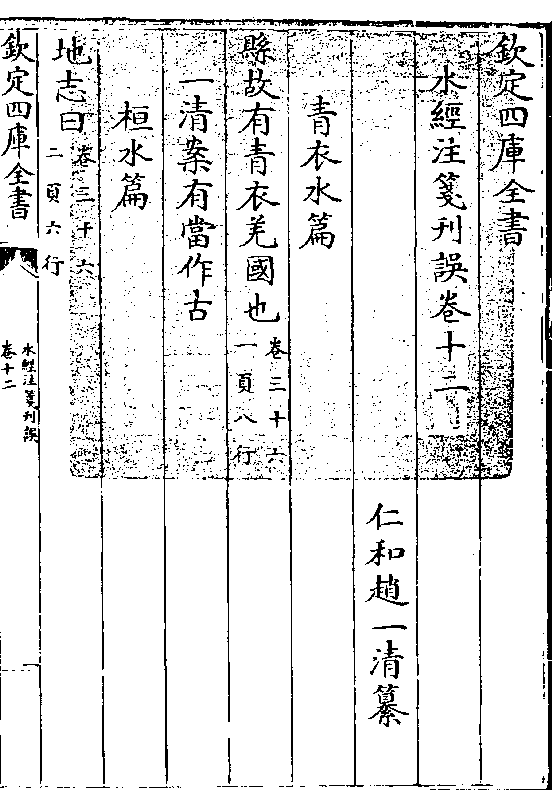 欽定四庫全書
水經注箋刊誤卷十二
仁和趙一清纂
青衣水篇
縣故有青衣羌國也卷三十六
一頁八行
一清案有當作古
桓水篇
地志曰卷三十六
二頁六行
欽定四庫全書
水經注箋刊誤
卷十二